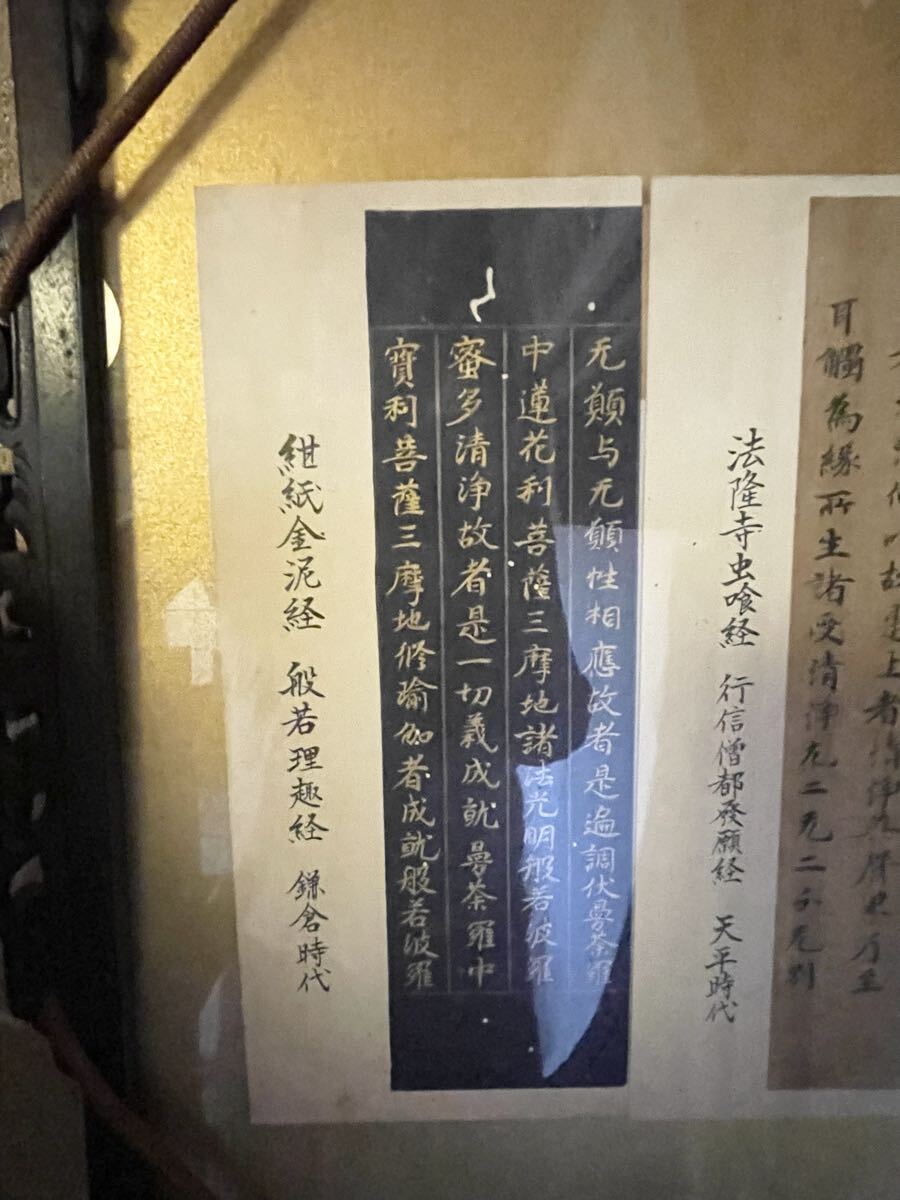 耳觸為緣所生諸受清淨无二无二分无別
法隆寺虫喰経 行信僧都發願経 天平時代
无願与无願性相應故者是遍調伏曼荼羅
中蓮花利菩薩三摩地諸法光明般若波羅
蜜多清浄故者是一切義成就曼荼羅中
寶利菩薩三摩地修瑜伽者成就般若波羅
紺紙金泥経 般若理趣経 鎌倉時代